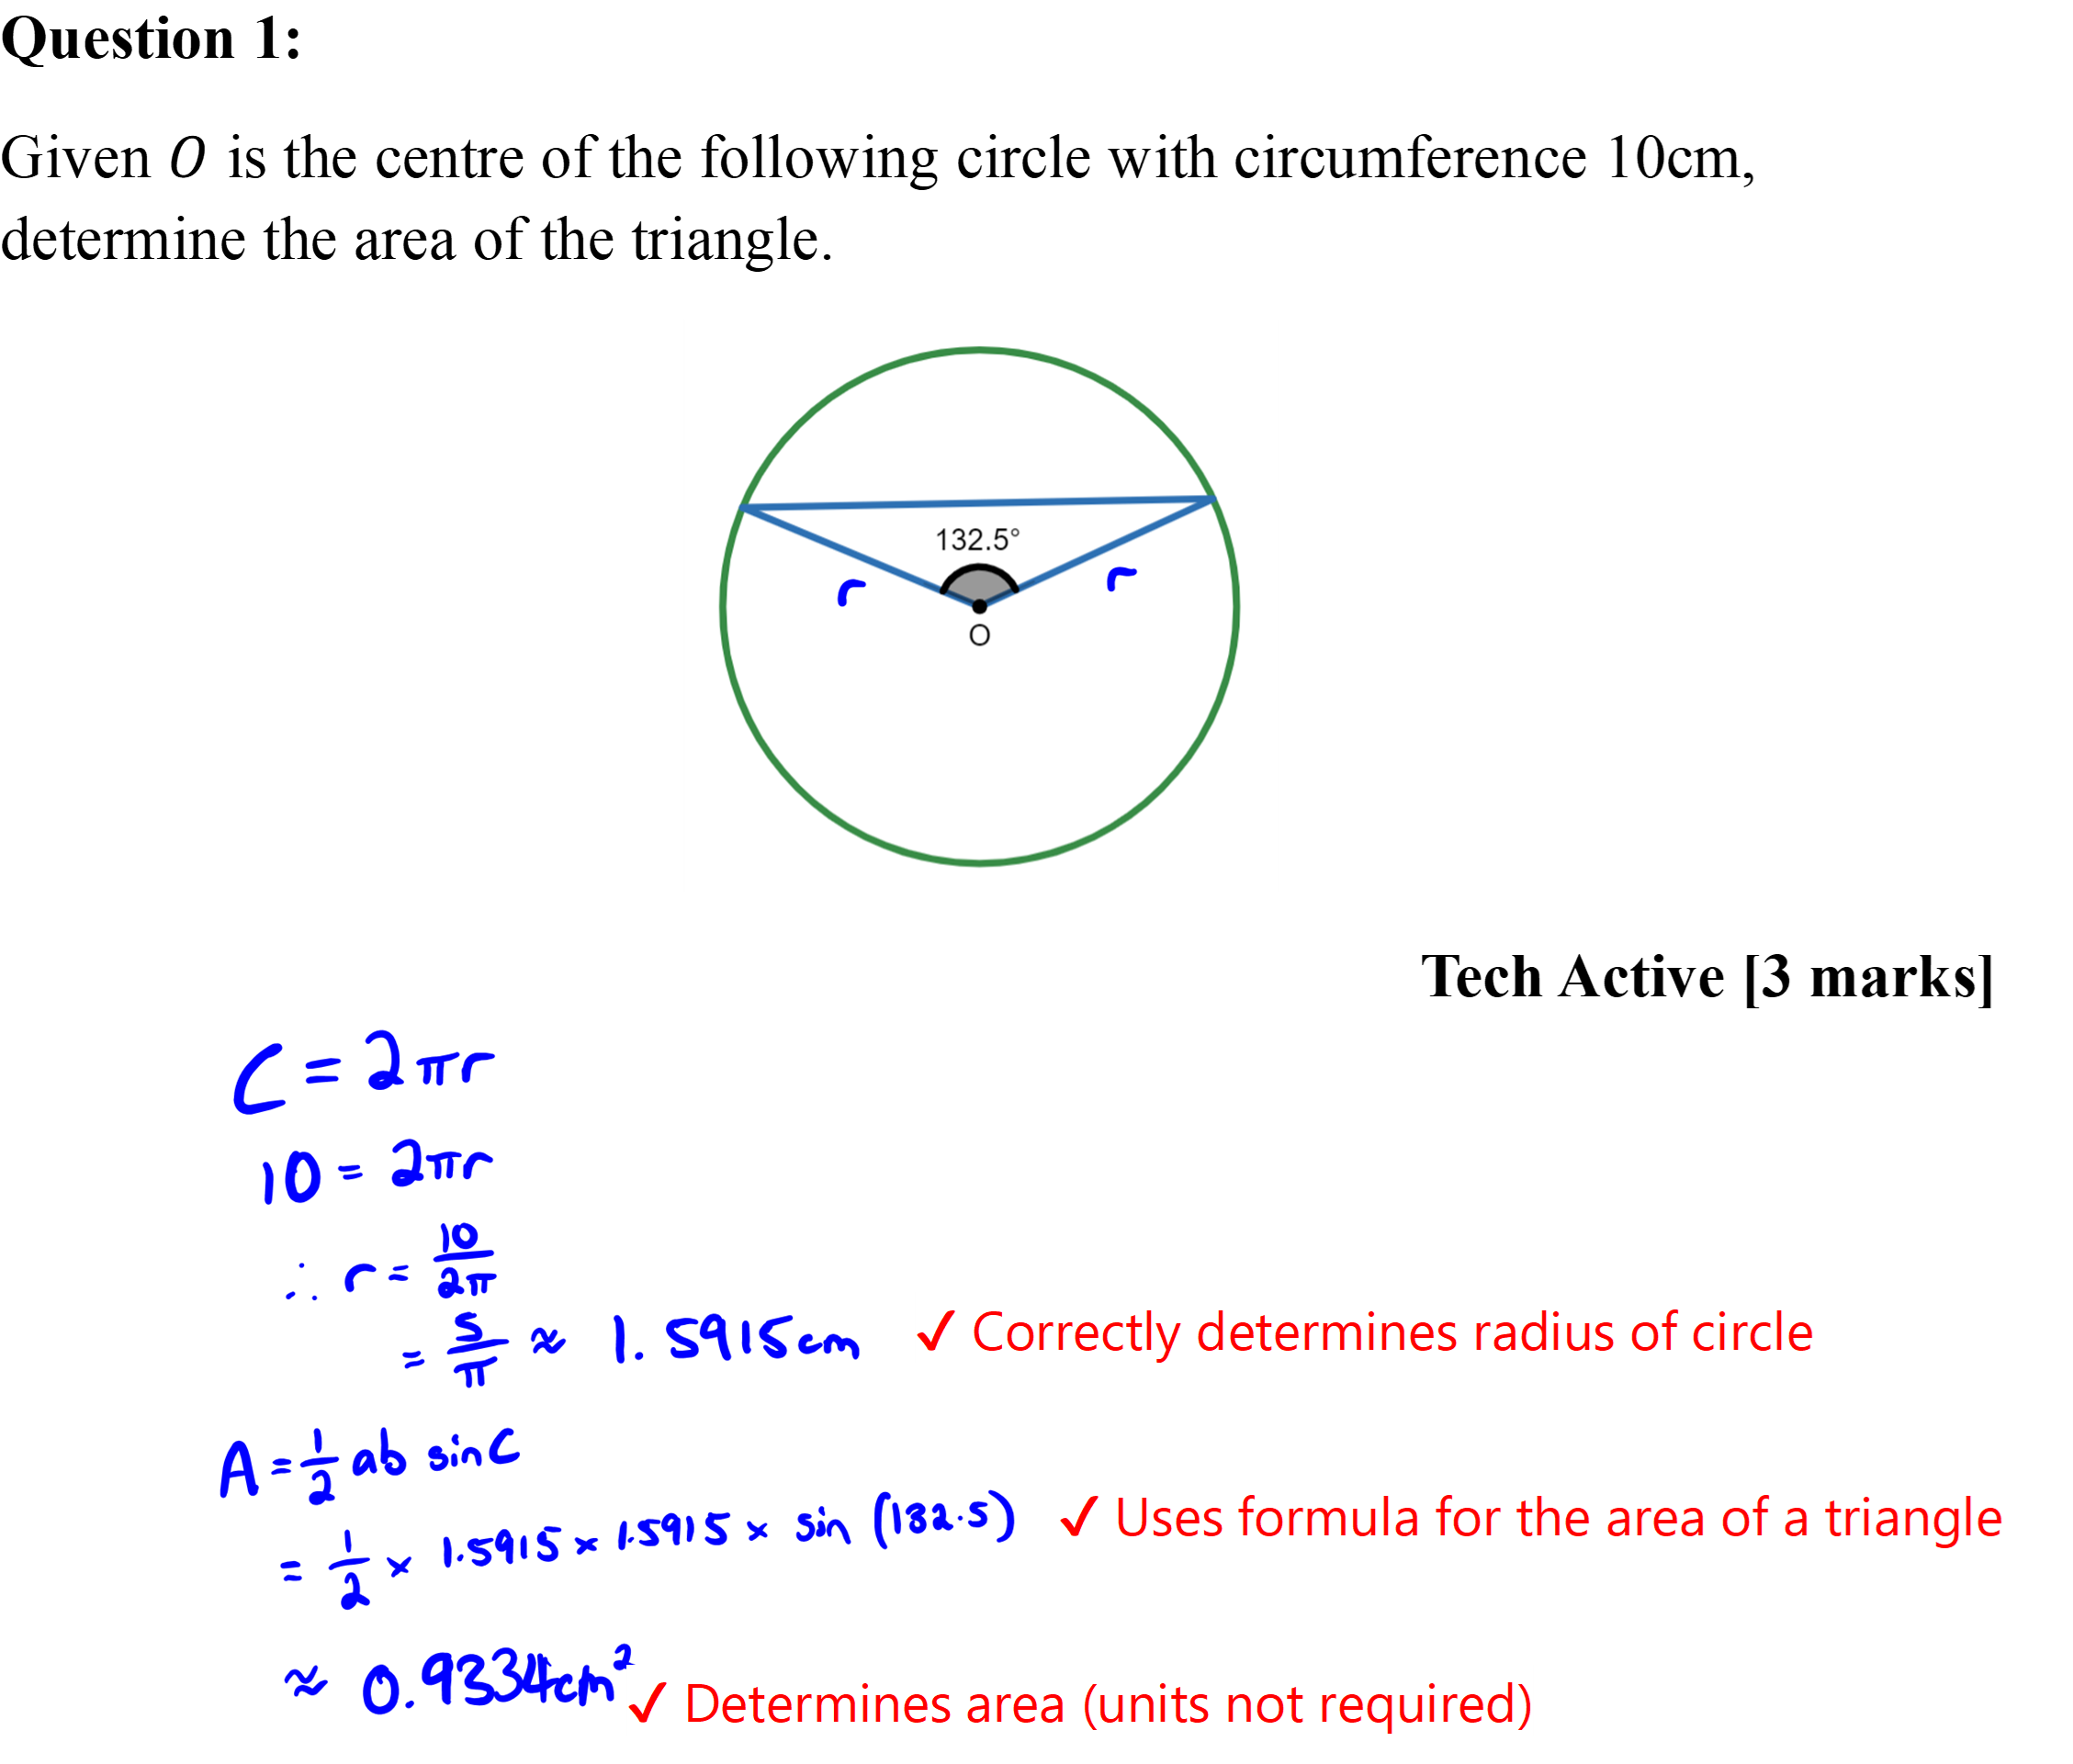 Question 1:
Given O is the centre of the following circle with circumference 10cm,
determine the area of the triangle.
132.5°
r
r
O
Tech Active [3 marks]
C = 2πr
10 = 2πr
∴ r = 10/2π
= 5/π ≈ 1.5915cm ✓ Correctly determines radius of circle
A = 1/2 ab sin C
= 1/2 × 1.5915 × 1.5915 × sin (132.5) ✓ Uses formula for the area of a triangle
≈ 0.9334cm² ✓ Determines area (units not required)